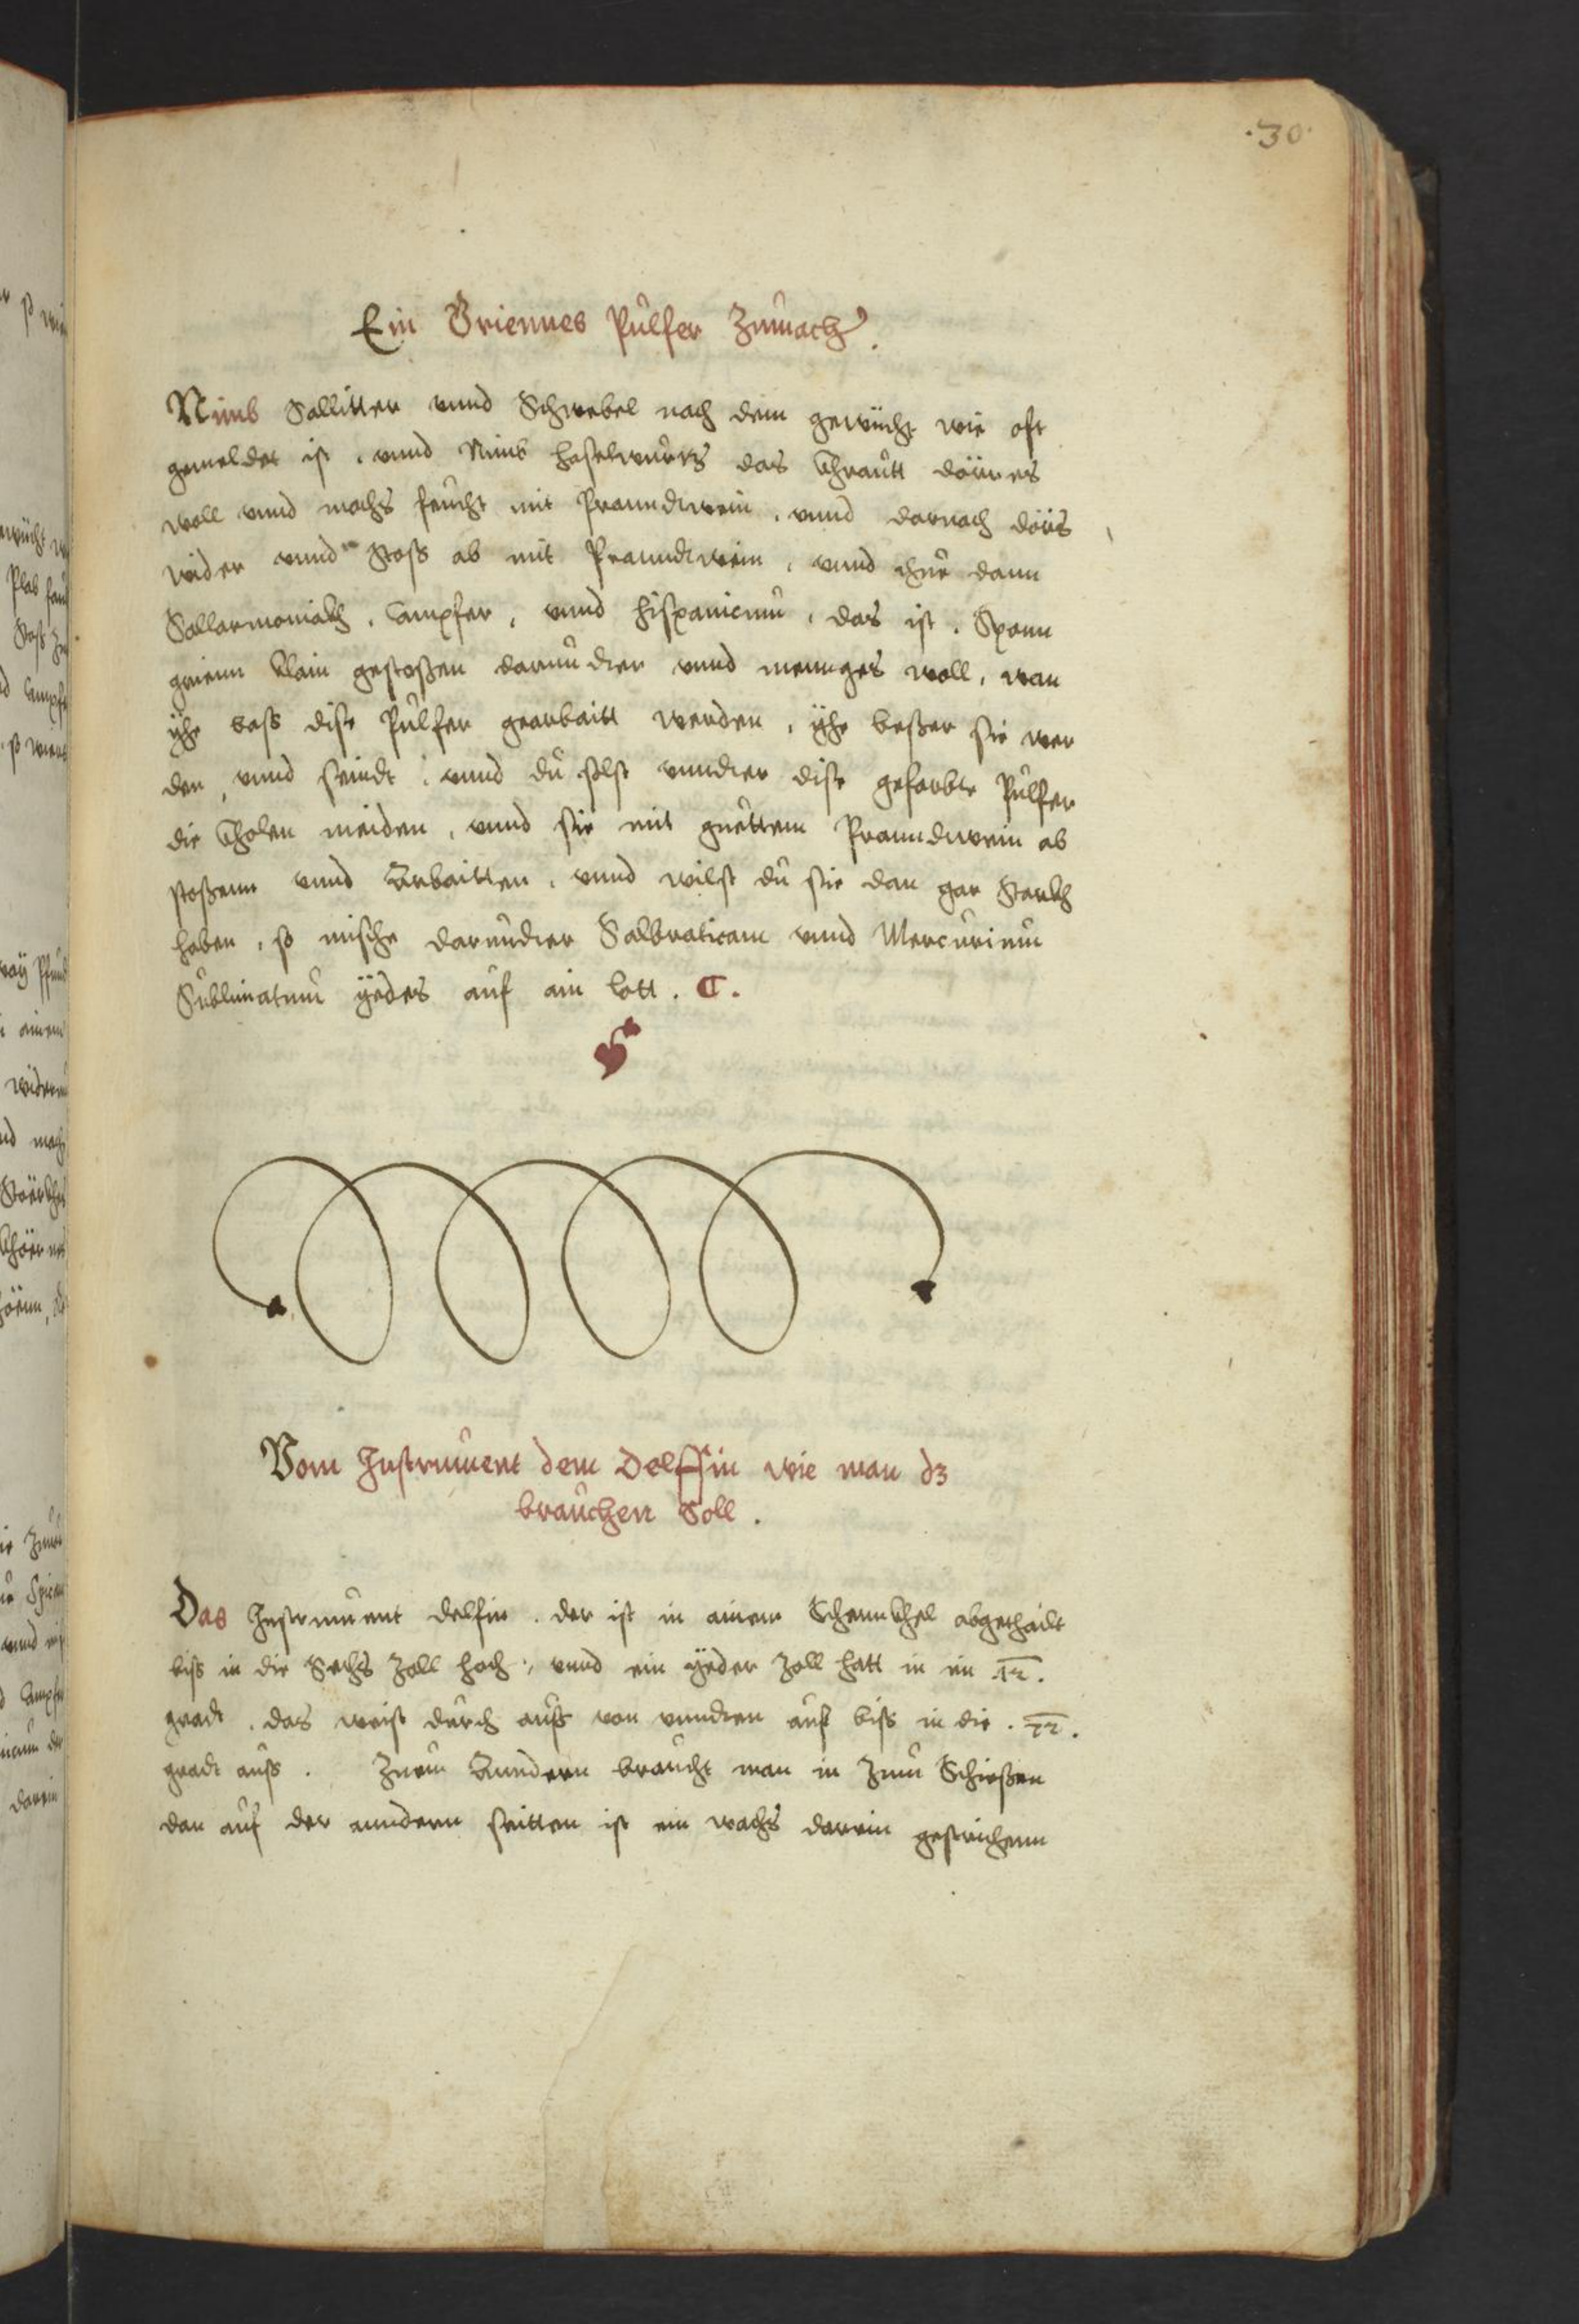 .30.
Ein Griennes Pulfer Zumach.
Nimb Sallitter vnnd Schwebel nach dem gewücht wie oft
gemeldet ist, vnnd Nimb haselwurtz das Khrautt dörres
woll vnnd machs feucht mit Pranndtwein, vnnd darnach dörs
wider vnnd Stoß ab mit Pranndtwein, vnnd thue dann
Sallarmoniakh, Campfer, vnnd hispanicum, das ist, Spann
grienn klain gestoßen darundter vnnd mennges woll, wan
yhe baß dise Pulfer gearbaitt werden, yhe beßer sie wer
den, vnnd seindt, vnnd du solst vnndter dise gefarbte Pulfer
die Kholen meiden, vnnd sie mit guettem Pranndtwein ab
stoßenn vnnd Arbaitten, vnnd wilst du sie dan gar Starkh
haben, so mische darundter Salbraticam vnnd Mercurium
Sublimatum yedes auf ain lott.
Vom Instrument dem Delffin wie man dz
brauchen Soll.
Das Instrument delfin. der ist in ainem Schennkhel abgethailt
biß in die Sechs Zoll hoch, vnnd ein yeder Zoll hatt in im .12.
gradt, das weist durch auß von vnndten auf biß in die .72.
gradt auß. Zum Anndern braucht man in Zum Schießen
dan auf der anndern seitten ist ein wachs darein gestrichenn